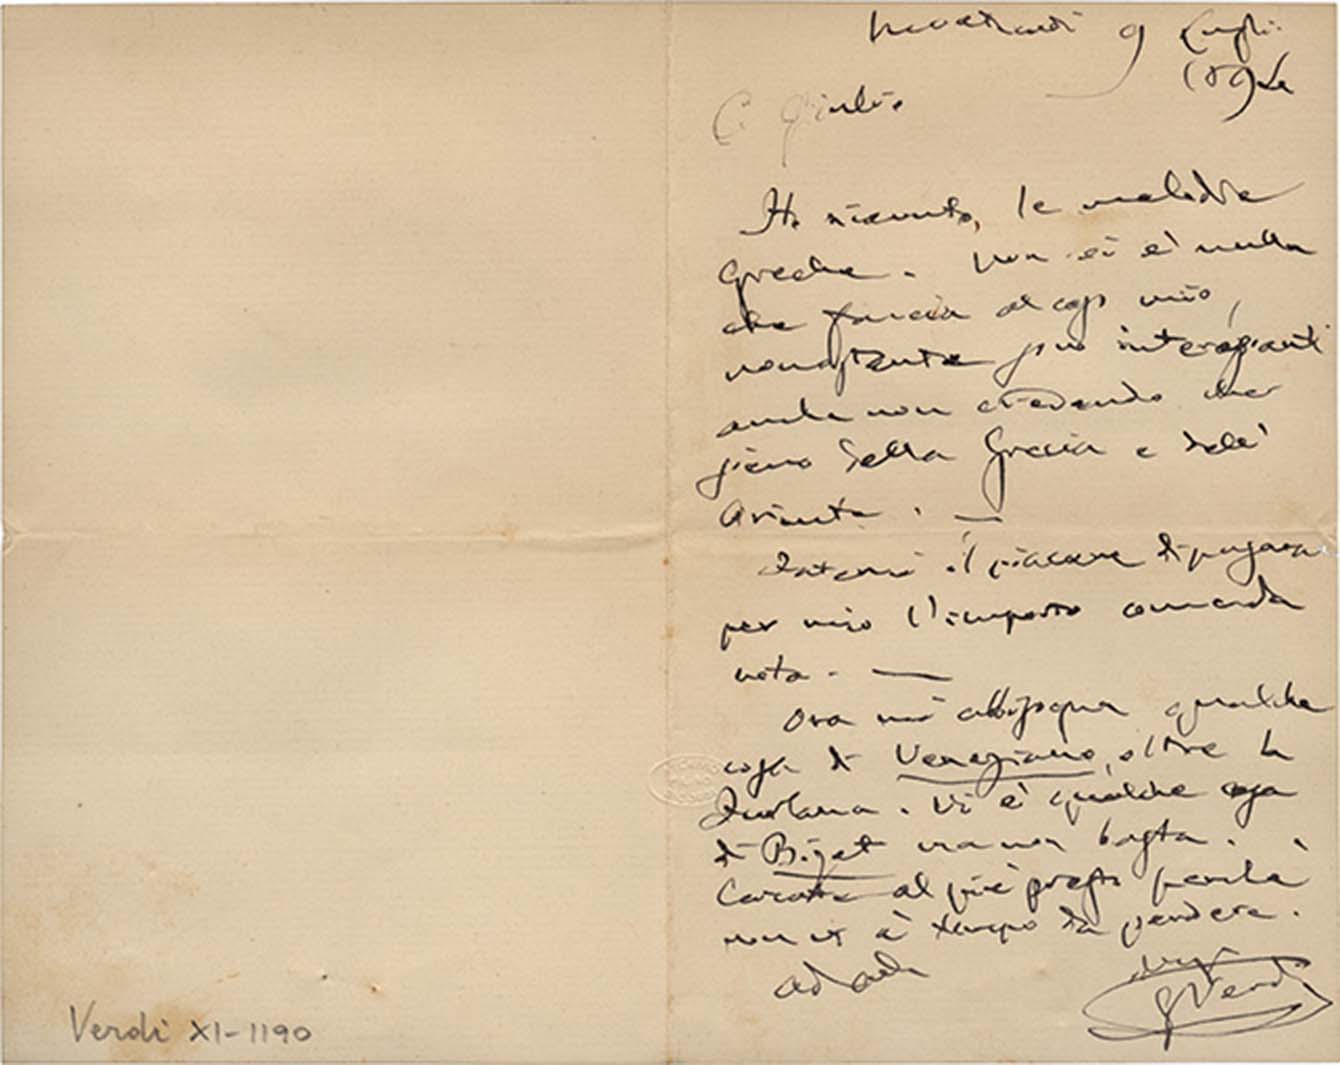 Montecatini 9 Luglio
1894
C. Giulio
Ho ricevuto, le melodie
Greche. Non vi è nulla
che faccia al caso mio,
nonostante sono interessanti
anche non credendo che
siano della Grecia e dell'
Oriente. —
Fatemi il piacere di pagare
per mio l'importo come da
nota. —
Ora mi abbisogna qualche
cosa di Veneziano, oltre la
Furlana. Vi è qualche cosa
di Bizet ma non basta.
Cercate al più presto perchè
non vi è tempo da perdere.
Addio
G Verdi
Verdi XI-1190